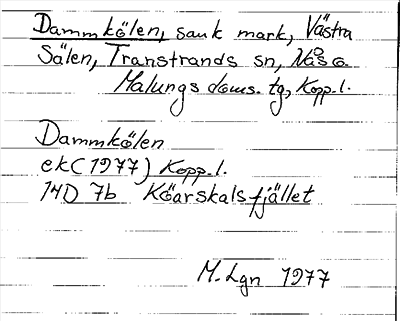 Dammkölen, sank mark, Västra
Sälen, Transtrands sn, Nås o
Malungs doms. tg, Kopp. l.
Dammkölen
ek (1977) Kopp. l.
14D 7b Köarskalsfjället
M. Lgn 1977